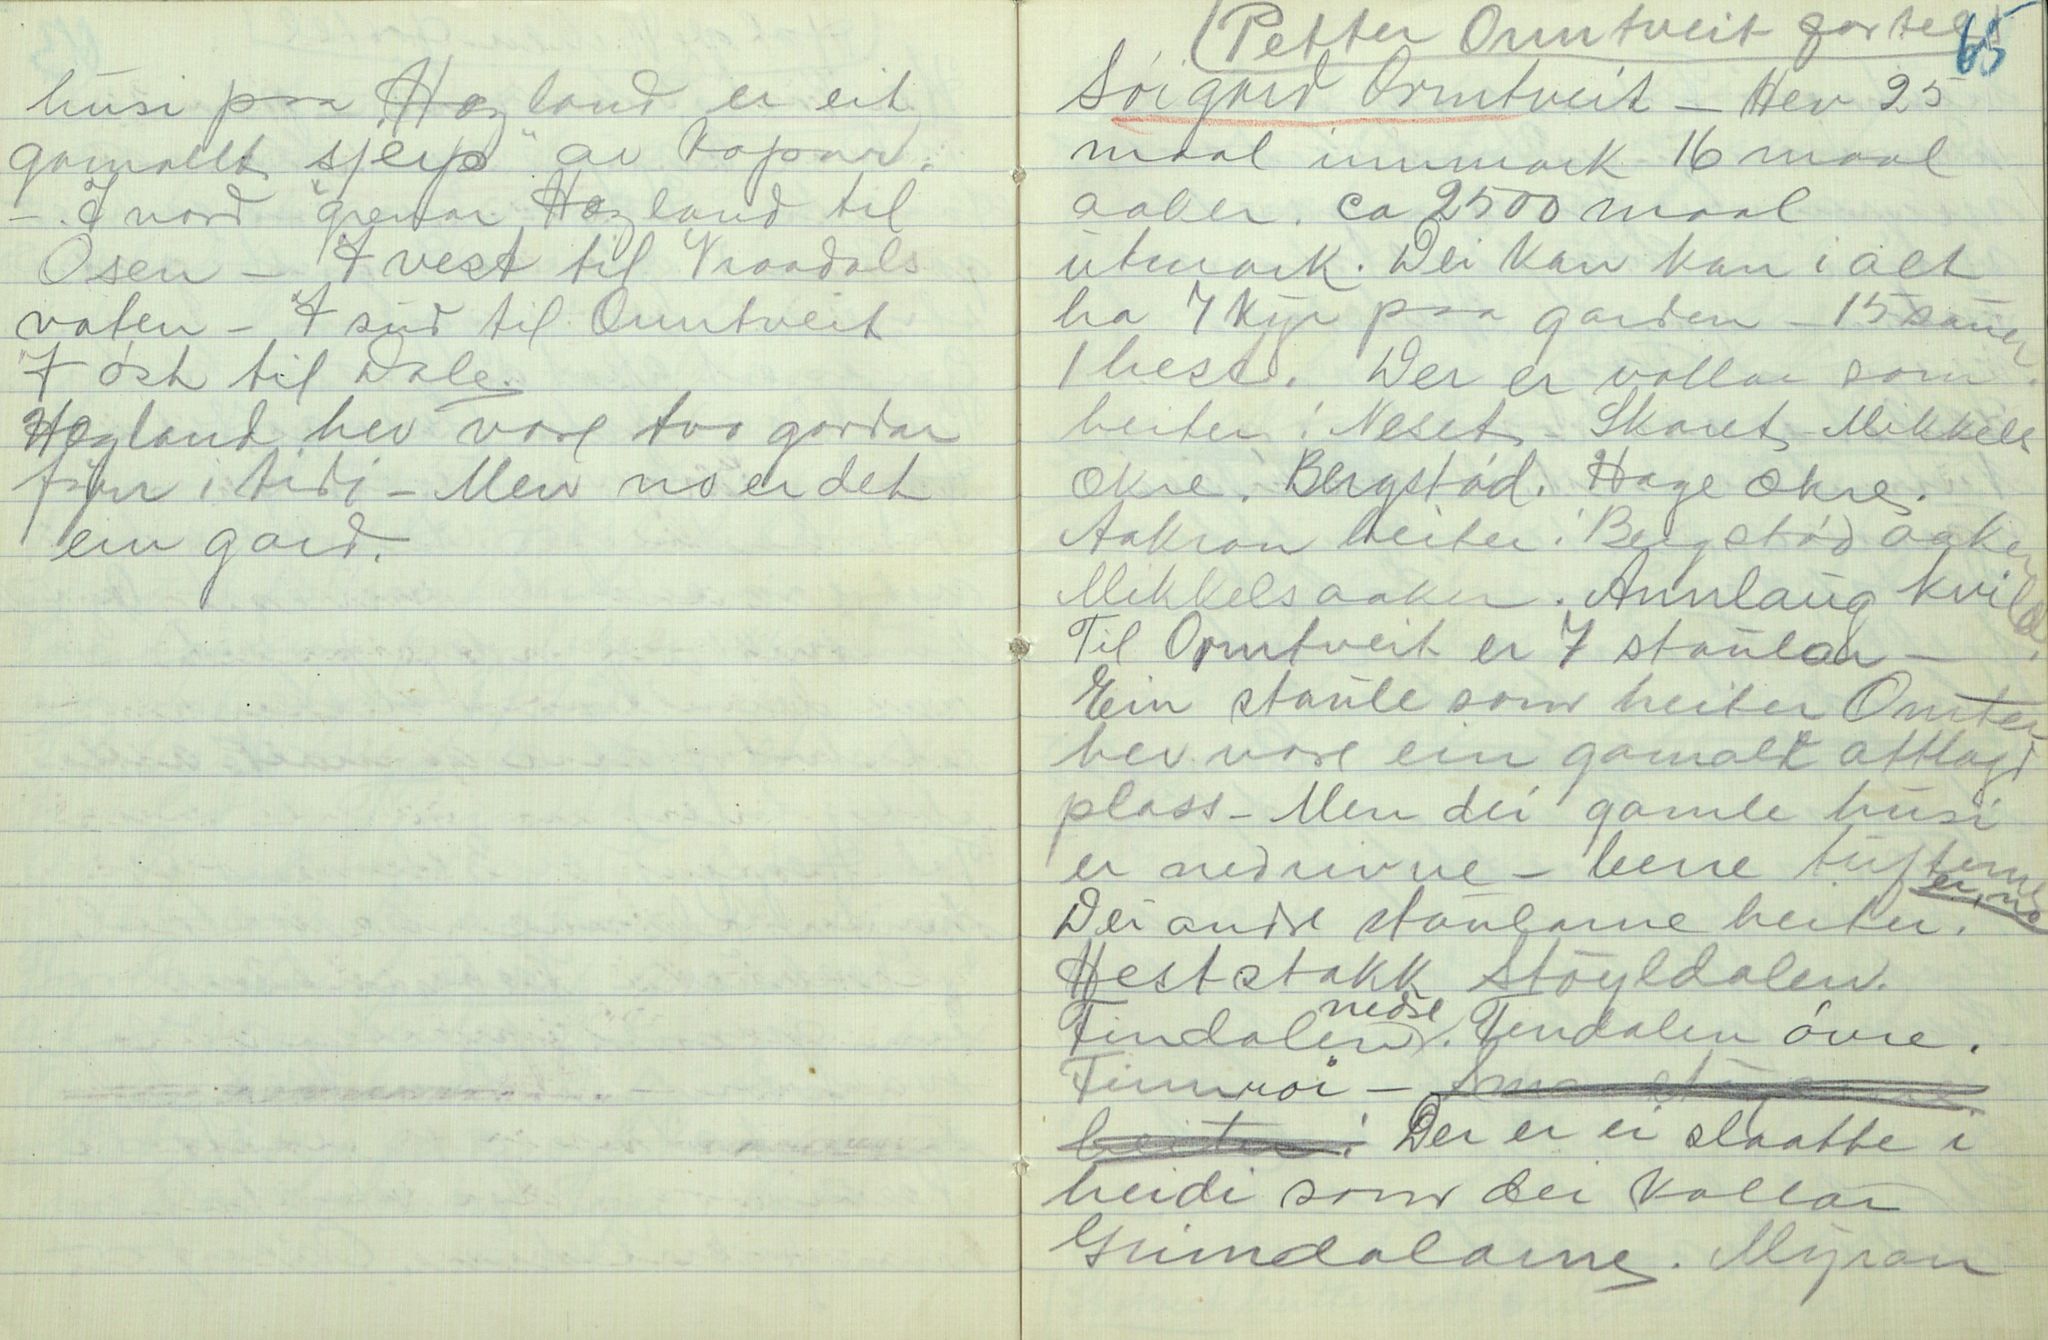 husi paa Hægland er eit
gamallt "sjerp" av Kopar.
- I nord grensar Hægland til
Osen - I vest til Vraadals
vaten - I sud til Ormtveit
I øst til Dale.
Hægland hev vore tvo gardar
fyrr i tidi - Men no er det
ein gard.
(Petter Ormtveit fortel)
65
Søigard Ormtveit - Hev 25
maal innmark 16 maal
aaker. ca 2500 maal
utmark. Dei kan kan i alt
ha 7 kyr paa garden - 15 sauer
1 hest. Der er vollar som
heiter: Neset - Skaret Mikkels
økre. Bergstød. Hage økre.
Aakran heiter: Bergstød aaker
Mikkelsaaker. Annlaug kvild.
Til Ormtveit er 7 staular -
Ein staule som heiter
hev vore ein gamalt attlagd
plass - Men dei gamle husi
er nedrivne - berre tufterne
er no
Dei andre staularne heiter.
Heststakk Støyldalen.
Findalen nedre. Findalen øvre.
Finnroi -
heiter: Der er ei slaatte i
heidi som dei kallar
Grimdalarne. Myran